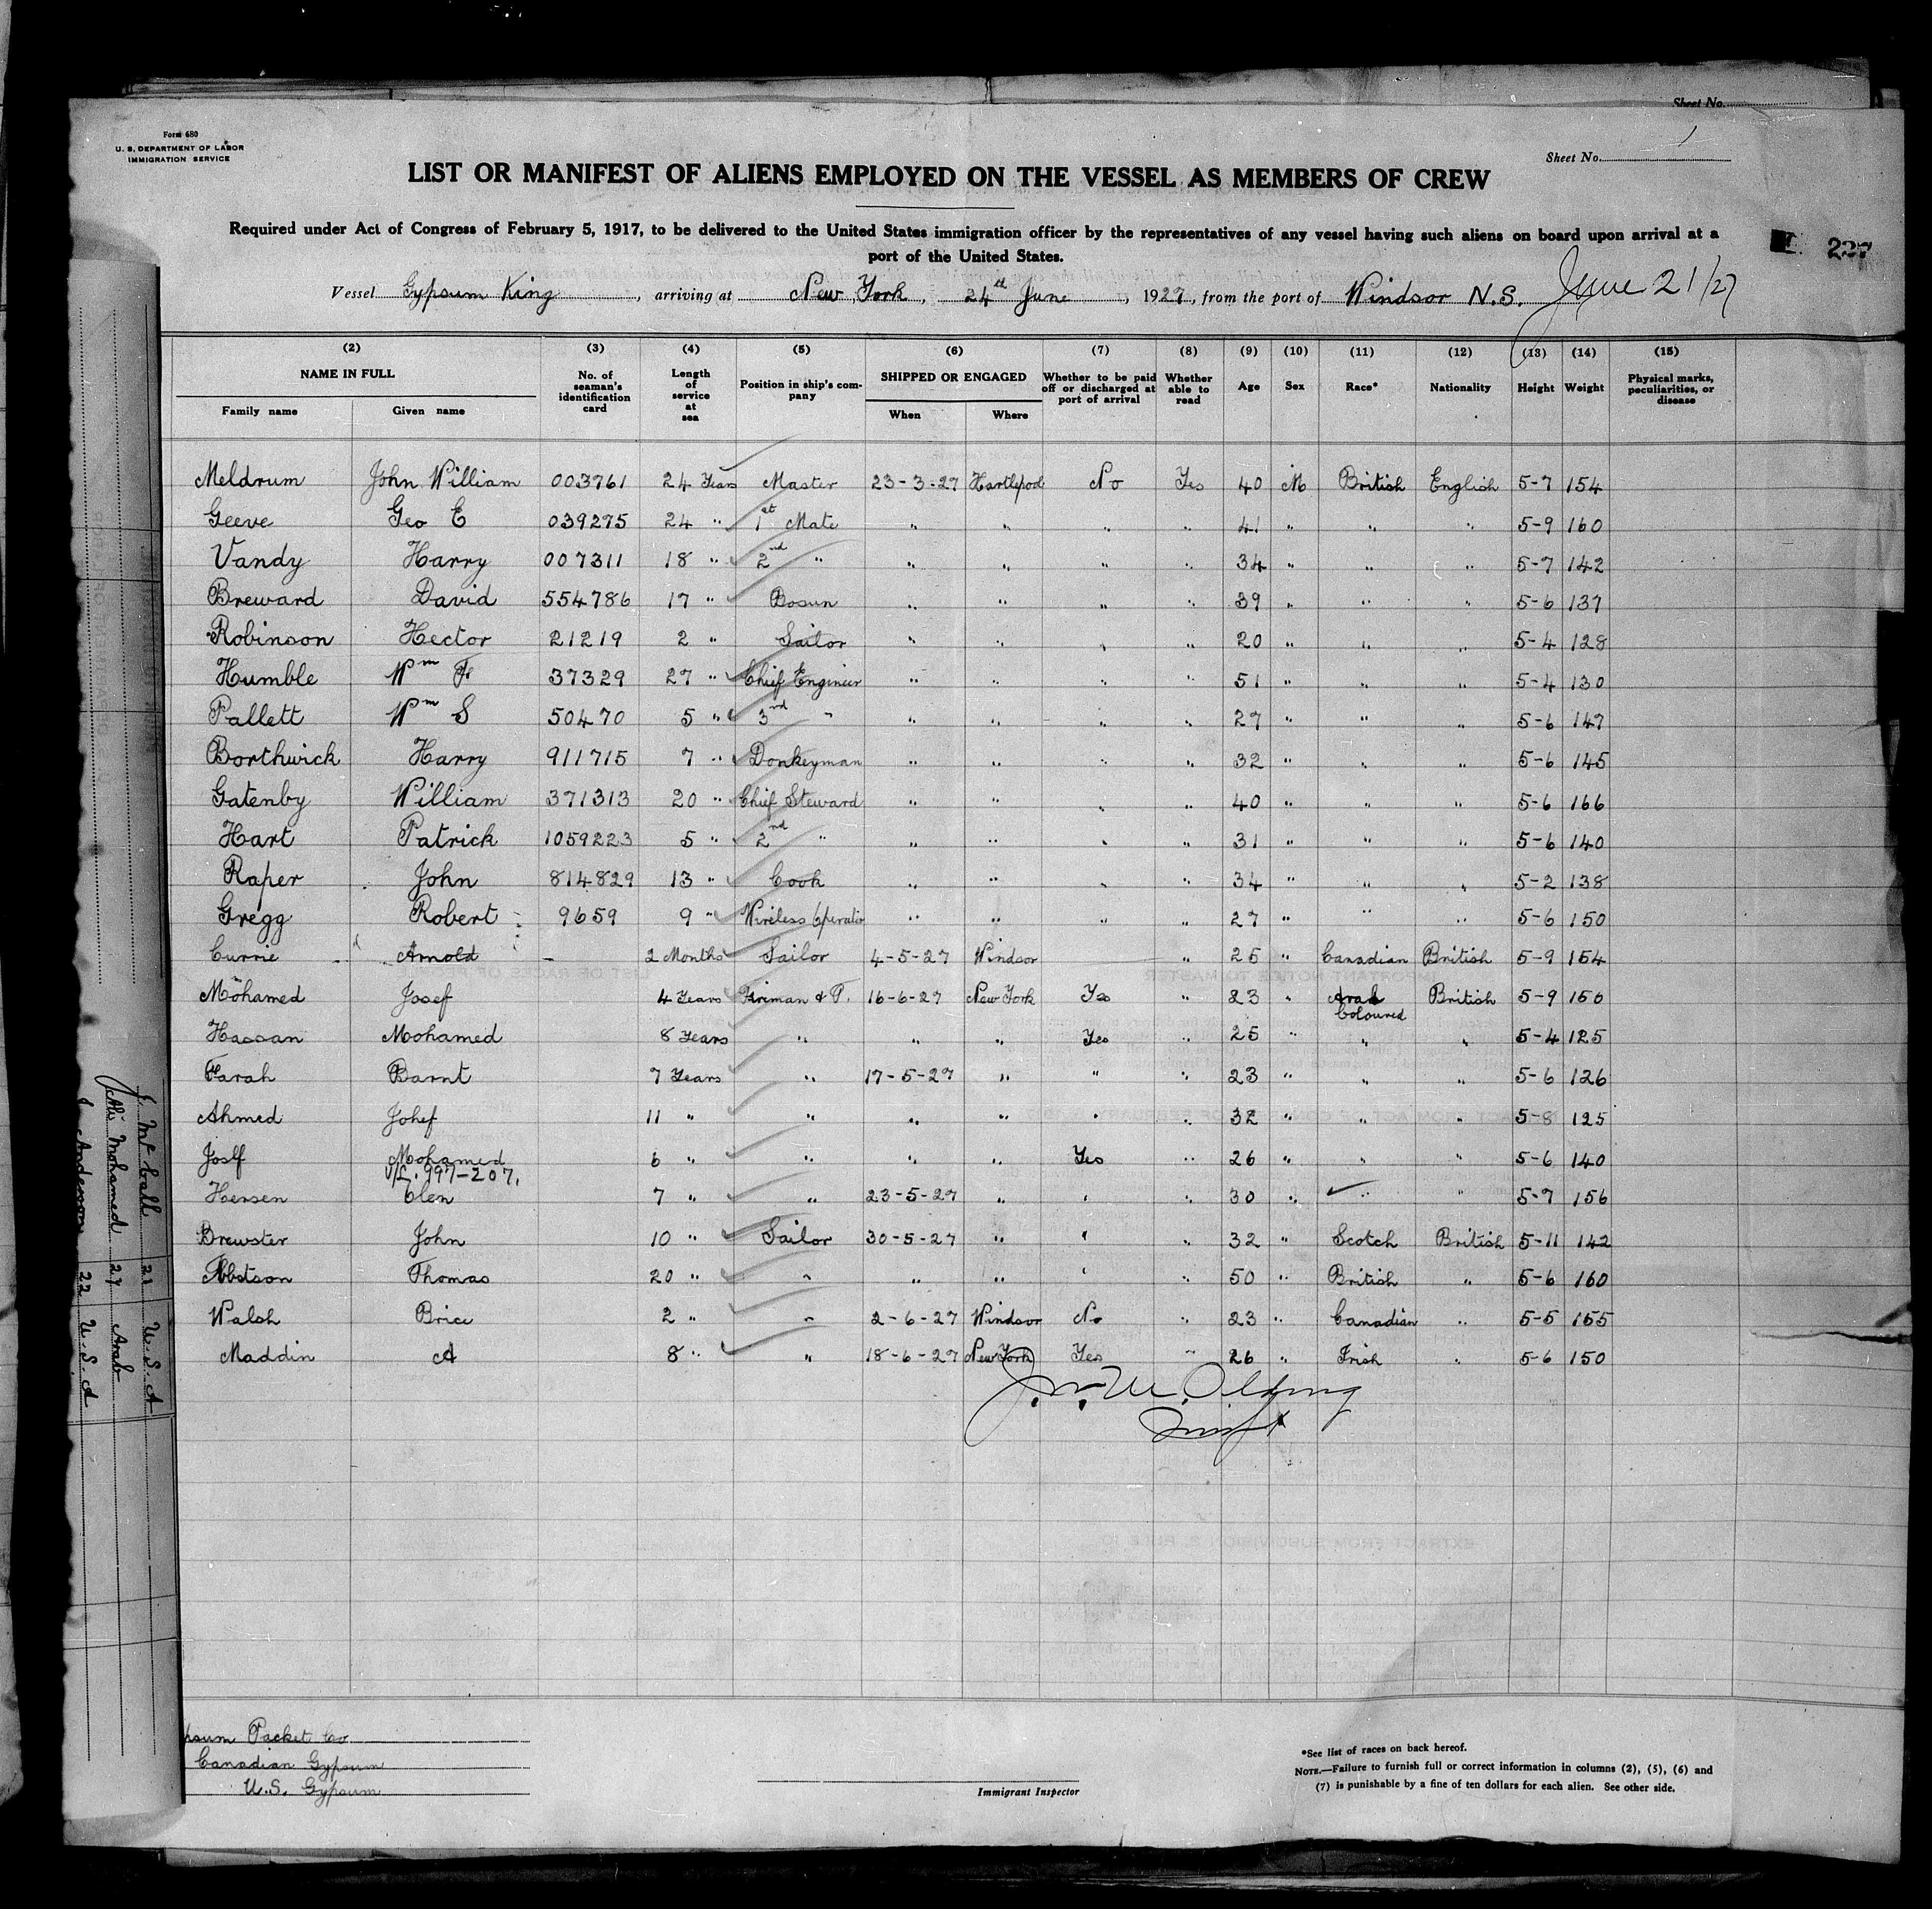 Sheet No.
Form 680
U. S. DEPARTMENT OF LABOR
IMMIGRATION SERVICE
Sheet No. 1
LIST OR MANIFEST OF ALIENS EMPLOYED ON THE VESSEL AS MEMBERS OF CREW
Required under Act of Congress of February 5, 1917, to be delivered to the United States immigration officer by the representatives of any vessel having such aliens on board upon arrival at a
port of the United States.
237
Vessel Gypsum King, arriving at New York, 24th June, 1927, from the port of Windsor N.S. June 21/27
(2) (3) (4) (5) (6) (7) (8) (9) (10) (11) (12) (13) (14) (15)
NAME IN FULL No. of seaman's identification card Length of service at sea Position in ship's company SHIPPED OR ENGAGED Whether to be paid off or discharged at port of arrival Whether able to read Age Sex Race* Nationality Height Weight Physical marks, peculiarities, or disease
Family name Given name When Where
Meldrum John William 003761 24 Years Master 23-3-27 Hartlepool No Yes 40 M British English 5-7 154
Geeve Geo E 039275 24 " 1st Mate " " " " 41 " " " 5-9 160
Vandy Harry 007311 18 " 2nd " " " " " 34 " " " 5-7 142
Breward David 554786 17 " Bosun " " " " 39 " " " 5-6 137
Robinson Hector 21219 2 " Sailor " " " " 20 " " " 5-4 128
Humble Wm F 37329 27 " Chief Engineer " " " " 51 " " " 5-4 130
Pallett Wm S 50470 5 " 3rd " " " " " 27 " " " 5-6 147
Borthwick Harry 911715 7 " Donkeyman " " " " 32 " " " 5-6 145
Gatenby William 371313 20 " Chief Steward " " " " 40 " " " 5-6 166
Hart Patrick 1059223 5 " 2nd " " " " " 31 " " " 5-6 140
Raper John 814829 13 " Cook " " " " 34 " " " 5-2 138
Gregg Robert 9659 9 " Wireless Operator " " " " 27 " " " 5-6 150
Currie Arnold - 2 Months Sailor 4-5-27 Windsor " 25 " Canadian British 5-9 154
Mohamed Josef 4 Years Fireman & T. 16-6-27 New York Yes " 23 " Arab British 5-9 150
Coloured
Hassan Mohamed 8 Years " " " Yes " 25 " " " 5-4 125
Farah Barnt 7 Years " 17-5-27 " " " 23 " " " 5-6 126
Ahmed Johef 11 " " " " " " 32 " " " 5-8 125
Joslf Mohamed 6 " " " " Yes " 26 " " " 5-6 140
997-207,
Hensen Olen 7 " " 23-5-27 " " " 30 " " " 5-7 156
Brewster John 10 " Sailor 30-5-27 " " " 32 " Scotch British 5-11 142
Thomas 20 " " " " " " 50 " British " 5-6 160
Walsh Brice 2 " " 2-6-27 Windsor No " 23 " Canadian " 5-5 155
Maddin A 8 " " 18-6-27 New York Yes " 26 " Irish " 5-6 150
J Mc Call 21 U.S.A
Ali Mohamed 27 Arab
J Anderson 22 U.S.A
psum Packet Co
Canadian Gypsum
U.S. Gypsum
Immigrant Inspector
*See list of races on back hereof.
NOTE.—Failure to furnish full or correct information in columns (2), (5), (6) and
(7) is punishable by a fine of ten dollars for each alien. See other side.